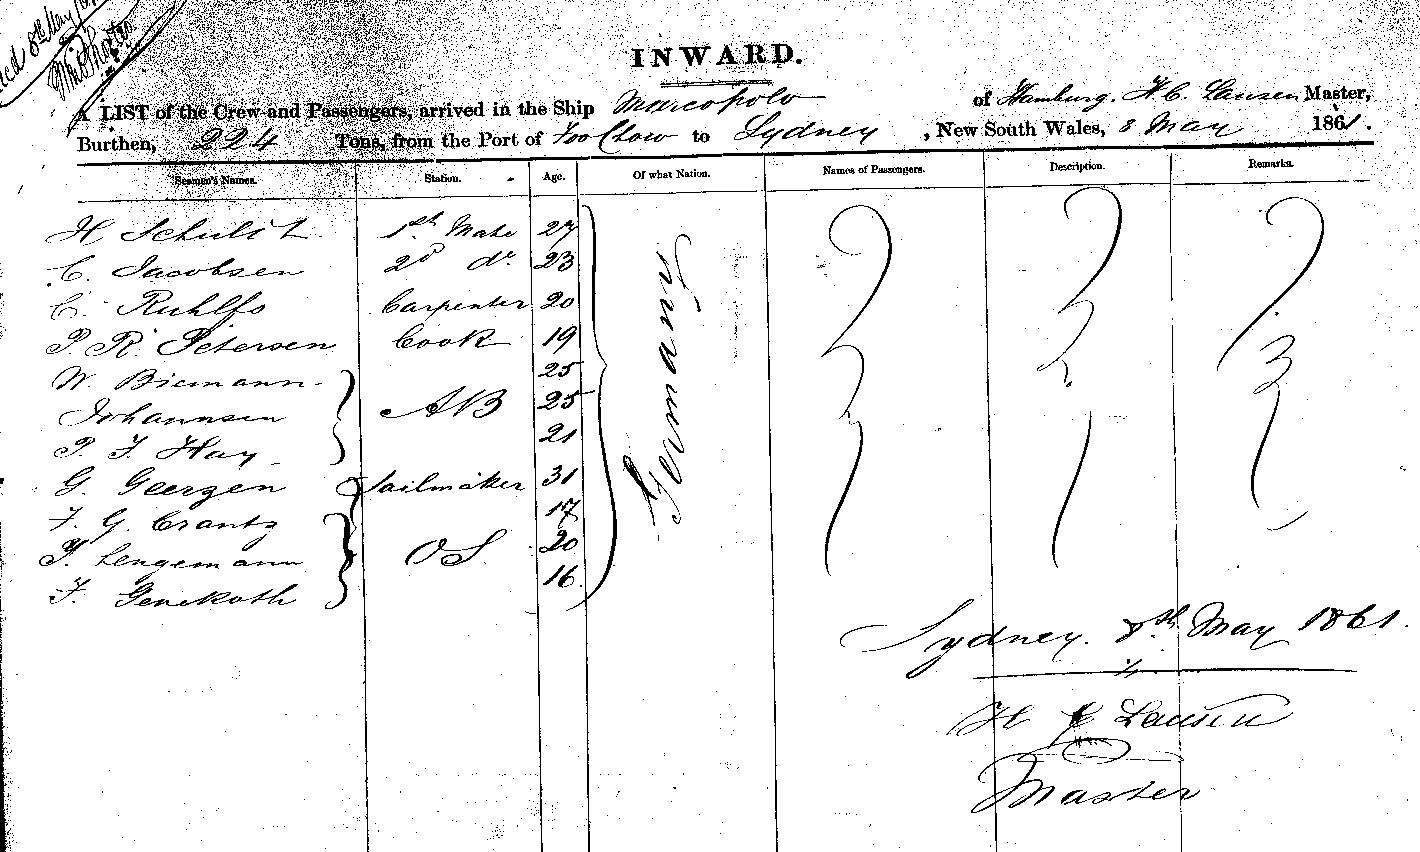 8th May
INWARD.
A LIST of the Crew and Passengers, arrived in the Ship Marcopolo of Hamburg. H C. Lausen Master,
Burthen, 224 Tons, from the Port of Foo Chow to Sydney, New South Wales, 8 May 1861.
Seamen's Names. Station. Age. Of what Nation. Names of Passengers. Description. Remarks.
H Schulst 1st Mate 27
C. Jacobsen 2d do 23
C. Ruhlfo Carpenter 20
P. R. Petersen Cook 19
W. Biemann 25
Johannsen AB 25
P. F. Hay 21
G. Geergen Sailmaker 31
F. G. Crantz 17
F. Lengemann OS 20
F. Genekoth 16
Germany
Sydney. 8th May 1861.
H C Lausen
Master